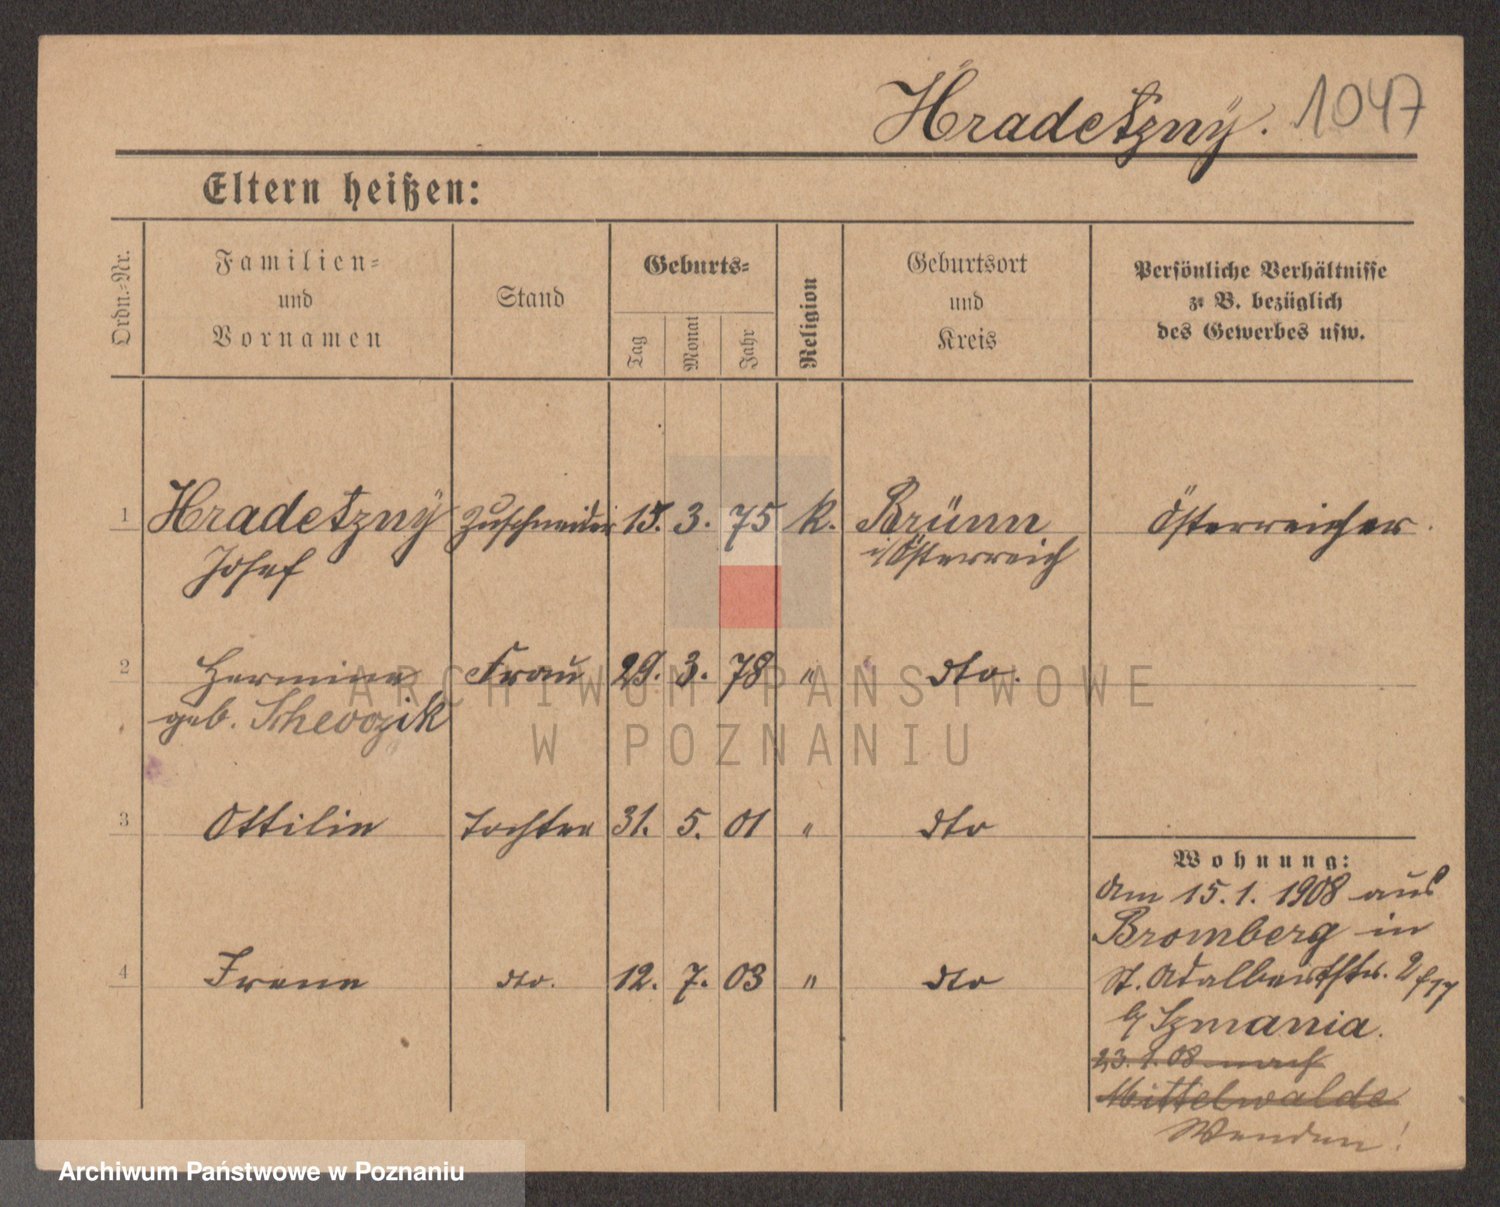 Hradetzny. 1047
Eltern heißen:
Ordn.-Nr.
Familien-
und
Vornamen
Stand
Geburts-
Tag
Monat
Jahr
Religion
Geburtsort
und
Kreis
Persönliche Verhältnisse
z. B. bezüglich
des Gewerbes usw.
1 Hradetzny Zuschneider 15. 3. 75 k. Brünn Österreicher.
Josef i/Österreich
2 Hermine Frau 29. 3. 78 " dto.
geb.
3 Ottilie Tochter 31. 5. 01 " dto
4 Irene dto. 12. 7. 03 " dto
Wohnung:
Am 15.1.1908 aus
Bromberg in
St. Adalbertstr.
b/ Szmania.
23.1.08 nach
Mittelwalde
Wenden!
ARCHIWUM PAŃSTWOWE
W POZNANIU
Archiwum Państwowe w Poznaniu